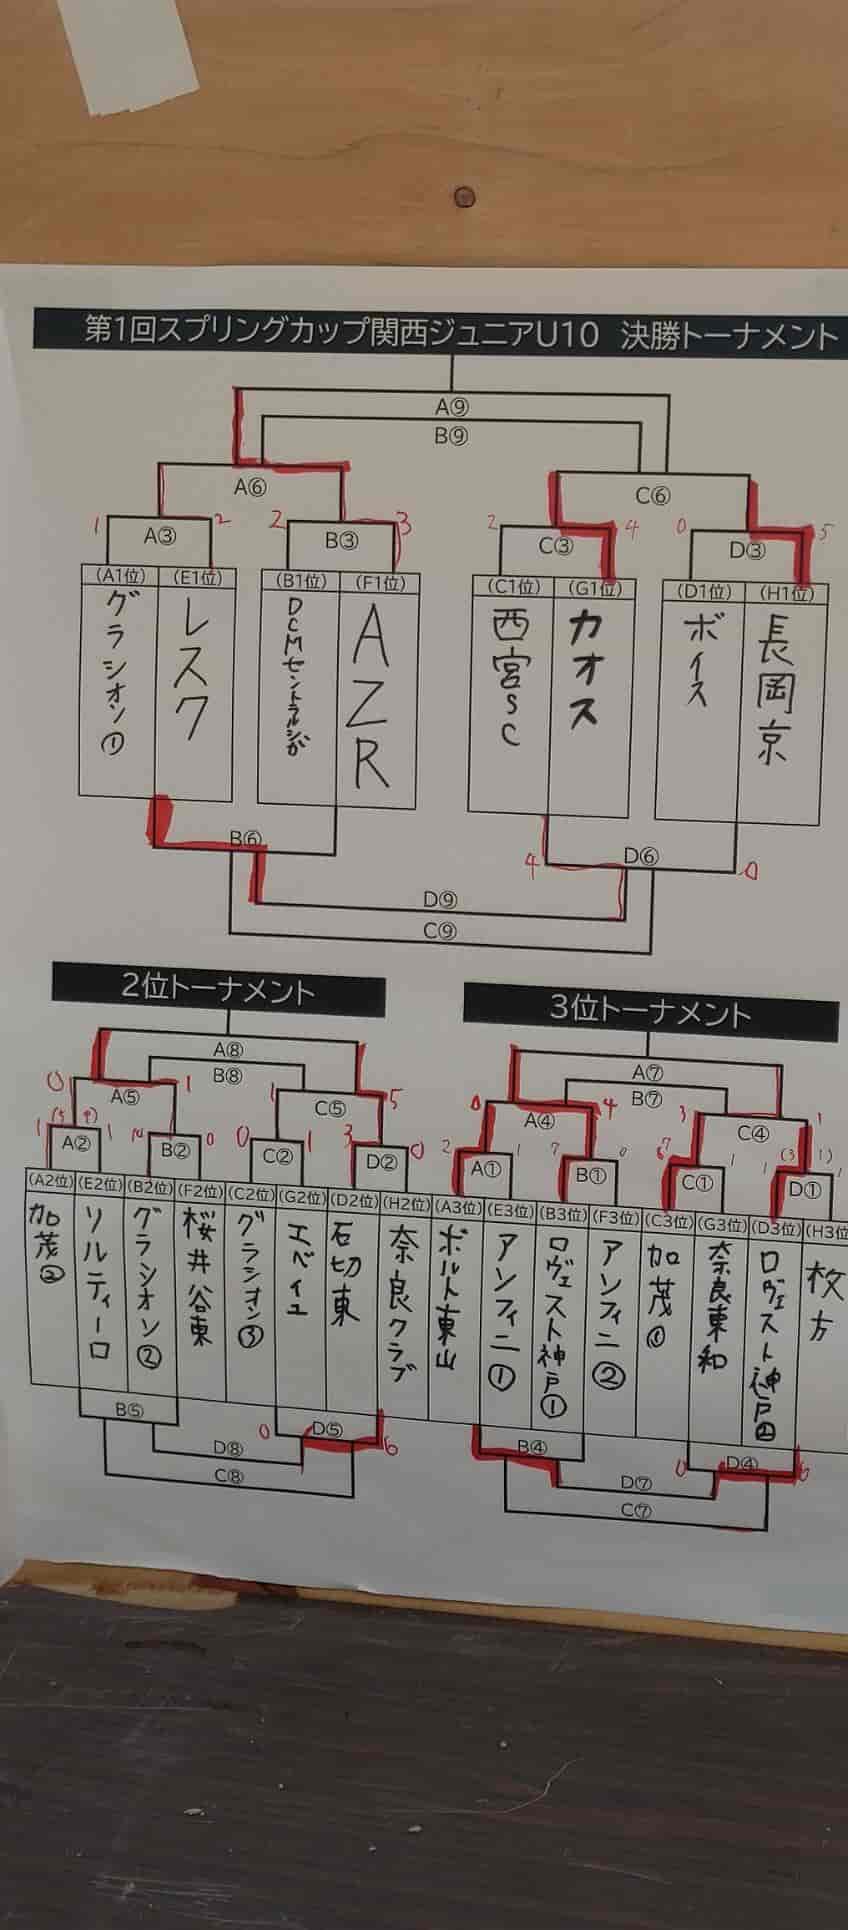 第1回スプリングカップ関西ジュニアU10 決勝トーナメント
A⑨
B⑨
A⑥ C⑥
1 A③ 2 2 B③ 3 2 C③ 4 0 D③ 5
(A1位) (E1位) (B1位) (F1位) (C1位) (G1位) (D1位) (H1位)
グラシオン①
レスク
DCMセントラルシガ
AZR
西宮SC
カオス
ボイス
長岡京
B⑥ 4 D⑥ 0
D⑨
C⑨
2位トーナメント
A⑧
B⑧
0 A⑤ 1 1 C⑤ 5
1 A② 1 B② 0 0 C② 1 3 D② 0
(A2位) (E2位) (B2位) (F2位) (C2位) (G2位) (D2位) (H2位)
加茂②
ソルティーロ
グラシオン②
桜井谷東
グラシオン③
エベイユ
石切東
奈良クラブ
B⑤ 0 D⑤ 6
D⑧
C⑧
3位トーナメント
A⑦
B⑦
0 A④ 4 3 C④ 1
2 A① 1 7 B① 0 C① 1 1 (3 D① 1) 1
(A3位) (E3位) (B3位) (F3位) (C3位) (G3位) (D3位) (H3位
ボルト東山
アンフィニ①
ロヴェスト神戸①
アンフィニ②
加茂①
奈良東和
ロヴェスト神戸②
枚方
B④ 0 D④ 6
D⑦
C⑦